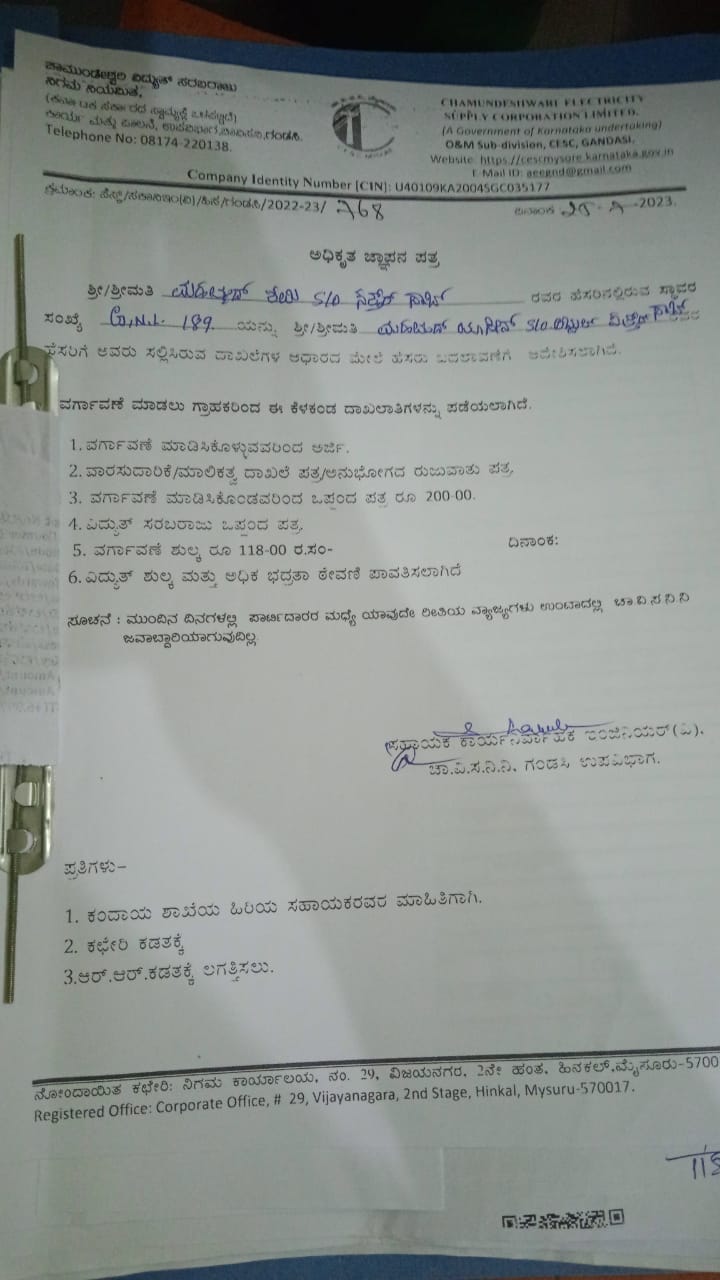 ಚಾಮುಂಡೇಶ್ವರಿ ವಿದ್ಯುತ್ ಸರಬರಾಜು
ನಿಗಮ ನಿಯಮಿತ,
(ಕರ್ನಾಟಕ ಸರ್ಕಾರದ ಸ್ವಾಮ್ಯಕ್ಕೆ ಒಳಪಟ್ಟಿದೆ)
ಕಾರ್ಯ ಮತ್ತು ಪಾಲನೆ, ಉಪವಿಭಾಗ,ಚಾವಿಸನಿ,ಗಂಡಸಿ.
Telephone No: 08174-220138.
CHAMUNDESHWARI ELECTRICITY
SUPPLY CORPORATION LIMITED.
(A Government of Karnataka undertaking)
O&M Sub-division, CESC, GANDASI.
Website: https://cescmysore.karnataka.gov.in
E-Mail ID: aeegnd@gmail.com
Company Identity Number [CIN]: U40109KA2004SGC035177
2022-23/ 768
ದಿನಾಂಕ 25-7-2023.
ಅಧಿಕೃತ ಜ್ಞಾಪನ ಪತ್ರ
ಶ್ರೀ/ಶ್ರೀಮತಿ S/o ರವರ ಹೆಸರಿನಲ್ಲಿರುವ ಸ್ಥಾವರ
ಸಂಖ್ಯೆ 189 ಯನ್ನು ಶ್ರೀ/ಶ್ರೀಮತಿ S/o
ಹೆಸರಿಗೆ ಅವರು ಸಲ್ಲಿಸಿರುವ ದಾಖಲೆಗಳ ಆಧಾರದ ಮೇಲೆ ಹೆಸರು ಬದಲಾವಣೆಗೆ ಆದೇಶಿಸಲಾಗಿದೆ.
ವರ್ಗಾವಣೆ ಮಾಡಲು ಗ್ರಾಹಕರಿಂದ ಈ ಕೆಳಕಂಡ ದಾಖಲಾತಿಗಳನ್ನು ಪಡೆಯಲಾಗಿದೆ.
1. ವರ್ಗಾವಣೆ ಮಾಡಿಸಿಕೊಳ್ಳುವವರಿಂದ ಅರ್ಜಿ.
2. ವಾರಸುದಾರಿಕೆ/ಮಾಲಿಕತ್ವ ದಾಖಲೆ ಪತ್ರ/ಅನುಭೋಗದ ರುಜುವಾತು ಪತ್ರ.
3. ವರ್ಗಾವಣೆ ಮಾಡಿಸಿಕೊಂಡವರಿಂದ ಒಪ್ಪಂದ ಪತ್ರ ರೂ 200-00.
4. ವಿದ್ಯುತ್ ಸರಬರಾಜು ಒಪ್ಪಂದ ಪತ್ರ.
5. ವರ್ಗಾವಣೆ ಶುಲ್ಕ ರೂ 118-00 ರ.ಸಂ- ದಿನಾಂಕ:
6. ವಿದ್ಯುತ್ ಶುಲ್ಕ ಮತ್ತು ಅಧಿಕ ಭದ್ರತಾ ಠೇವಣಿ ಪಾವತಿಸಲಾಗಿದೆ
ಸೂಚನೆ : ಮುಂದಿನ ದಿನಗಳಲ್ಲಿ ಪಾರ್ಟಿದಾರರ ಮಧ್ಯೆ ಯಾವುದೇ ರೀತಿಯ ವ್ಯಾಜ್ಯಗಳು ಉಂಟಾದಲ್ಲಿ ಚಾ.ವಿ.ಸ.ನಿ.ನಿ
ಜವಾಬ್ದಾರಿಯಾಗುವುದಿಲ್ಲ.
ಸಹಾಯಕ ಕಾರ್ಯನಿರ್ವಾಹಕ ಇಂಜಿನಿಯರ್(ವಿ),
ಚಾ.ವಿ.ಸ.ನಿ.ನಿ. ಗಂಡಸಿ ಉಪವಿಭಾಗ.
ಪ್ರತಿಗಳು-
1. ಕಂದಾಯ ಶಾಖೆಯ ಹಿರಿಯ ಸಹಾಯಕರವರ ಮಾಹಿತಿಗಾಗಿ.
2. ಕಛೇರಿ ಕಡತಕ್ಕೆ
3.ಆರ್.ಆರ್.ಕಡತಕ್ಕೆ ಲಗತ್ತಿಸಲು.
ನೋಂದಾಯಿತ ಕಛೇರಿ: ನಿಗಮ ಕಾರ್ಯಾಲಯ, ನಂ. 29, ವಿಜಯನಗರ, 2ನೇ ಹಂತ, ಹಿನಕಲ್,ಮೈಸೂರು-5700
Registered Office: Corporate Office, # 29, Vijayanagara, 2nd Stage, Hinkal, Mysuru-570017.